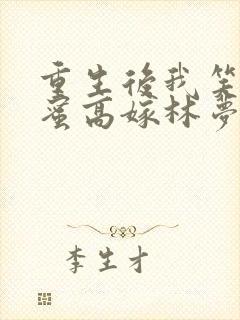 重生後我笑
蜜高嫁林夢
李生才